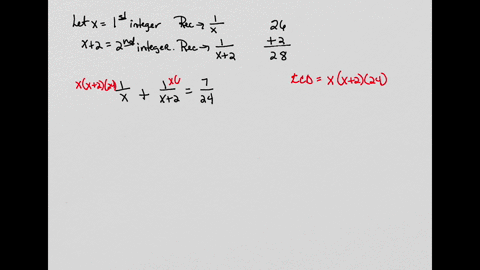 Let x = 1st integer Rec → 1/x
x+2 = 2nd integer. Rec → 1/(x+2)
26
+2
28
x(x+2)(24) 1/x + 1/(x+2) x( = 7/24
LCD = x(x+2)(24)